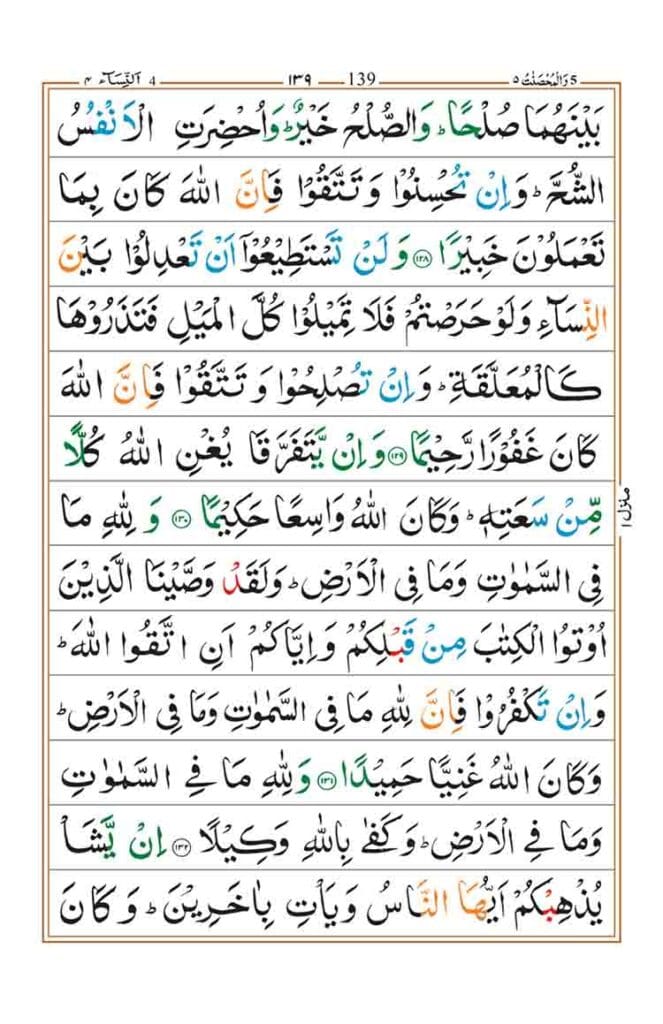 5 وَالْمُحْصَنٰتُ ۵ 139 ۱۳۹ 4 اَلنِّسَآء ۴
بَيْنَهُمَا صُلْحًا ؕ وَالصُّلْحُ خَيْرٌ ؕ وَاُحْضِرَتِ الْاَنْفُسُ
الشُّحَّ ؕ وَاِنْ تُحْسِنُوْا وَتَتَّقُوْا فَاِنَّ اللّٰهَ كَانَ بِمَا
تَعْمَلُوْنَ خَبِيْرًا ۱۲۸ وَلَنْ تَسْتَطِيْعُوْۤا اَنْ تَعْدِلُوْا بَيْنَ
النِّسَآءِ وَلَوْ حَرَصْتُمْ فَلَا تَمِيْلُوْا كُلَّ الْمَيْلِ فَتَذَرُوْهَا
كَالْمُعَلَّقَةِ ؕ وَاِنْ تُصْلِحُوْا وَتَتَّقُوْا فَاِنَّ اللّٰهَ
كَانَ غَفُوْرًا رَّحِيْمًا ۱۲۹ وَاِنْ يَّتَفَرَّقَا يُغْنِ اللّٰهُ كُلًّا
مِّنْ سَعَتِهٖ ؕ وَكَانَ اللّٰهُ وَاسِعًا حَكِيْمًا ۱۳۰ وَلِلّٰهِ مَا
فِى السَّمٰوٰتِ وَمَا فِى الْاَرْضِ ؕ وَلَقَدْ وَصَّيْنَا الَّذِيْنَ
اُوْتُوا الْكِتٰبَ مِنْ قَبْلِكُمْ وَاِيَّاكُمْ اَنِ اتَّقُوا اللّٰهَ ؕ
وَاِنْ تَكْفُرُوْا فَاِنَّ لِلّٰهِ مَا فِى السَّمٰوٰتِ وَمَا فِى الْاَرْضِ ؕ
وَكَانَ اللّٰهُ غَنِيًّا حَمِيْدًا ۱۳۱ وَلِلّٰهِ مَا فِى السَّمٰوٰتِ
وَمَا فِى الْاَرْضِ ؕ وَكَفٰى بِاللّٰهِ وَكِيْلًا ۱۳۲ اِنْ يَّشَاْ
يُذْهِبْكُمْ اَيُّهَا النَّاسُ وَيَاْتِ بِاٰخَرِيْنَ ؕ وَكَانَ
منزل ۱